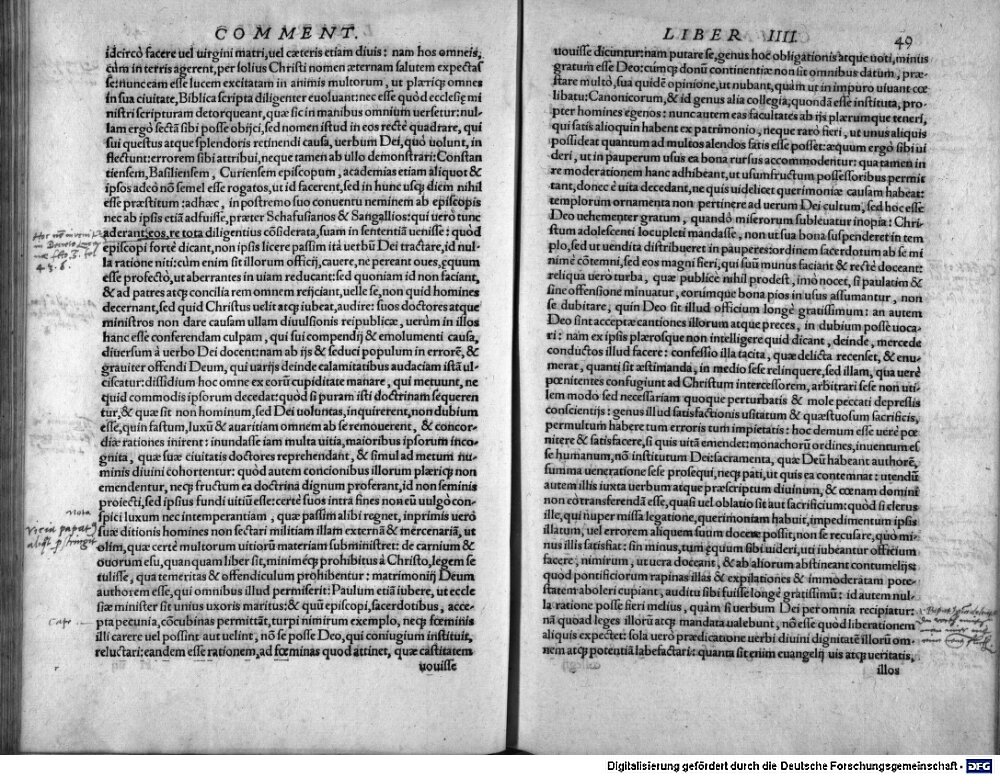 COMMENT.
idcircò facere uel uirgini matri, uel cæteris etiam diuis: nam hos omneis,
cùm in terris agerent, per solius Christi nomen æternam salutem expectas
se: nunc eam esse lucem excitatam in animis multorum, ut plæriq; omnes
in sua ciuitate, Biblica scripta diligenter euoluant: nec esse quòd ecclesiȩ mi
nistri scripturam detorqueant, quæ sic in manibus omnium uersetur: nul-
lam ergò sectā sibi posse obijci, sed nomen istud in eos rectè quadrare, qui
sui quæstus atque splendoris retinendi causa, uerbum Dei, quò uolunt, in
flectunt: errorem sibi attribui, neque tamen ab ullo demonstrari: Constan
tiensem, Basiliensem, Curiensem episcopum, academias etiam aliquot &
ipsos adeò nō semel esse rogatos, ut id facerent, sed in hunc usq; diem nihil
esse præstitum: adhæc, in postremo suo conuentu neminem ab episcopis
nec ab ipsis etiā adfuisse, præter Schafusianos & Sangallios: qui uerò tunc
aderant: eos, re tota diligentius cōsiderata, suam in sententiā uenisse: quòd
episcopi fortè dicant, non ipsis licere passim ita uerbū Dei tractare, id nul-
la ratione niti: cùm enim sit illorum officij, cauere, ne pereant oues, ȩquum
esse profectò, ut aberrantes in uiam reducant: sed quoniam id non faciant,
& ad patres atq; concilia rem omnem reijciant, uelle se, non quid homines
decernant, sed quid Christus uelit atq; iubeat, audire: suos doctores atque
ministros non dare causam ullam diuulsionis reipublicæ, uerùm in illos
hanc esse conferendam culpam, qui sui compendij & emolumenti causa,
diuersum à uerbo Dei docent: nam ab ijs & seduci populum in errorē, &
grauiter offendi Deum, qui uarijs deinde calamitatibus audaciam istā ul-
ciscatur: dissidium hoc omne ex eorū cupiditate manare, qui metuunt, ne
quid commodis ipsorum decedat: quòd si puram isti doctrinam sequeren
tur, & quæ sit non hominum, sed Dei uoluntas, inquirerent, non dubium
esse, quin fastum, luxū & auaritiam omnem ab se remouerent, & concor-
diæ rationes inirent: inundasse iam multa uitia, maioribus ipsorum inco-
gnita, quæ suæ ciuitatis doctores reprehendant, & simul ad metum nu-
minis diuini cohortentur: quòd autem concionibus illorum plæriq; non
emendentur, neq; fructum ea doctrina dignum proferant, id non seminis
proiecti, sed ipsius fundi uitiū esse: certè suos intra fines non eū uulgò con-
spici luxum nec intemperantiam, quæ passim alibi regnet, inprimis uerò
suæ ditionis homines non sectari militiam illam externā & mercenariā, ut
olim, quæ certè multorum uitiorū materiam subministret: de carnium &
ouorum esu, quanquam liber sit, minimeq; prohibitus à Christo, legem se
tulisse, qua temeritas & offendiculum prohibentur: matrimonij Deum
authorem esse, qui omnibus illud permiserit: Paulum etiā iubere, ut eccle
siæ minister sit unius uxoris maritus: & quū episcopi, sacerdotibus, acce-
pta pecunia, cōcubinas permittāt, turpi nimirum exemplo, neq; fœminis
illi carere uel possint aut uelint, nō se posse Deo, qui coniugium instituit,
reluctari: eandem esse rationem, ad fœminas quod attinet, quæ castitatem
uouisse
nota
LIBER IIII.
49
uouisse dicuntur: nam putare se, genus hoc obligationis atque uoti, minus
gratum esse Deo: cumq; donū continentiæ non sit omnibus datum, præ-
stare multò, sua quidē opinione, ut nubant, quàm ut in impuro uiuant cœ
libatu: Canonicorum, & id genus alia collegia, quondā esse instituta, pro-
pter homines egenos: nunc autem eas facultates ab ijs plærumque teneri,
qui satis alioquin habent ex patrimonio, neque rarò fieri, ut unus aliquis
possideat quantum ad multos alendos satis esse posset: æquum ergò sibi ui
deri, ut in pauperum usus ea bona rursus accommodentur: qua tamen in
re moderationem hanc adhibeant, ut usumfructum possessoribus permit
tant, donec è uita decedant, ne quis uidelicet querimoniæ causam habeat:
templorum ornamenta non pertinere ad uerum Dei cultum, sed hoc esse
Deo uehementer gratum, quando miserorum subleuatur inopia: Chri-
stum adolescenti locupleti mandasse, non ut sua bona suspenderet in tem
plo, sed ut uendita distribueret in pauperes: ordinem sacerdotum ab se mi
nimè cōtemni, sed eos magni fieri, qui suū munus faciant & rectè doceant:
reliqua uerò turba, quæ publicè nihil prodest, imò nocet, si paulatim &
sine offensione minuatur, eorumque bona pios in usus assumantur, non
se dubitare, quin Deo sit illud officium longè gratissimum: an autem
Deo sint acceptæ cantiones illorum atque preces, in dubium posse uoca-
ri: nam ex ipsis plærosque non intelligere quid dicant, deinde, mercede
conductos illud facere: confessio illa tacita, quæ delicta recenset, & enu-
merat, quanti sit æstimanda, in medio sese relinquere, sed illam, qua uerè
pœnitentes confugiunt ad Christum intercessorem, arbitrari sese non uti-
lem modo sed necessariam quoque perturbatis & mole peccati depressis
conscientijs: genus illud satisfactionis usitatum & quæstuosum sacrificis,
permultum habere tum erroris tum impietatis: hoc demum esse uerè pœ
nitere & satisfacere, si quis uitā emendet: monachorū ordines, inuentum es
se humanum, nō institutum Dei: sacramenta, quæ Deū habeant authorē,
summa ueneratione sese prosequi, neq; pati, ut quis ea contemnat: utendū
autem illis iuxta uerbum atque præscriptum diuinum, & cœnam domini
non eò transferendā esse, quasi uel oblatio sit aut sacrificium: quòd si clerus
ille, qui nuper missa legatione, querimoniam habuit, impedimentum ipsis
illatum, uel errorem aliquem suum docere possit, non se recusare, quò mi-
nus illis satisfiat: sin minus, tum ȩquum sibi uideri, uti iubeantur officium
facere, nimirum, ut uera doceant, & ab aliorum abstineant contumelijs:
quòd pontificiorum rapinas illas & expilationes & immoderatam pote-
statem aboleri cupiant, auditu sibi fuisse longè gratissimū: id autem nul-
la ratione posse fieri melius, quàm si uerbum Dei per omnia recipiatur:
nā quoad leges illorū atq; mandata ualebunt, nō esse quòd liberationem
aliquis expectet: sola uerò prædicatione uerbi diuini dignitatē illorū om-
nem atq; potentiā labefactari: quanta sit enim euangelij uis atq; ueritatis,
illos
Digitalisierung gefördert durch die Deutsche Forschungsgemeinschaft - DFG